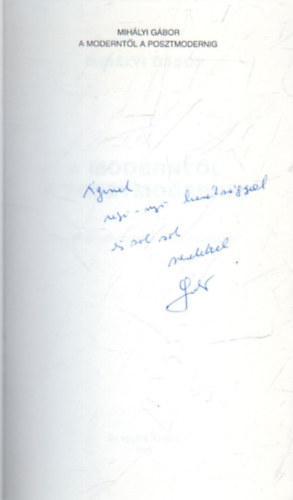 MIHÁLYI GÁBOR
A MODERNTŐL A POSZTMODERNIG
Áginak
régi-régi barátsággal
és sok sok
szeretettel
Gábor